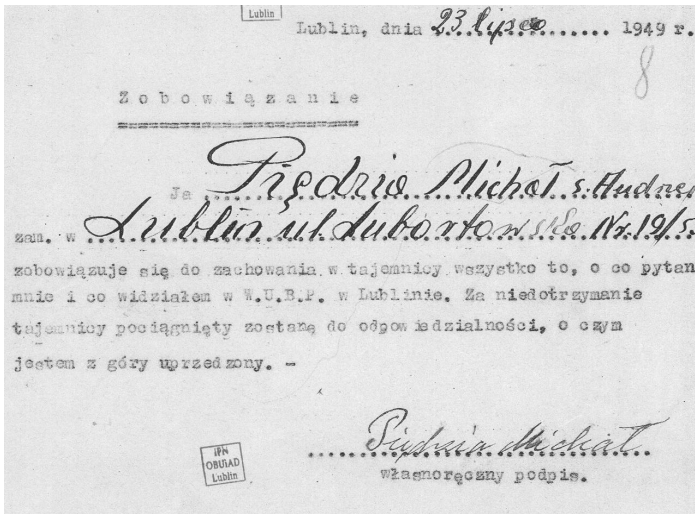 Lublin
Lublin, dnia 23 lipca 1949 r.
8
Zobowiązanie
Ja Piędzia Michał s. Andrzej
zam. w Lublin ul. Lubartowska Nr. 19/5.
zobowiązuje się do zachowania w tajemnicy wszystko to, o co pytan
mnie i co widziałem w W.U.B.P. w Lublinie. Za niedotrzymanie
tajemnicy pociągnięty zostanę do odpowiedzialności, o czym
jestem z góry uprzedzony. -
Piędzia Michał
własnoręczny podpis.
IPN
OBUiAD
Lublin